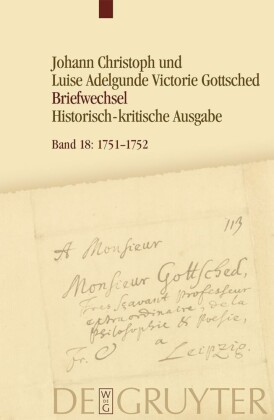 Johann Christoph und
Luise Adelgunde Victorie Gottsched
Briefwechsel
Historisch-kritische Ausgabe
Band 18: 1751–1752
113
A Monsieur
Monsieur Gottsched,
Tres scavant Professeur
extraordinaire de la
Philosophie & Poesie,
Fr. a
Leipzig.
DE GRUYTER
W
DE
G